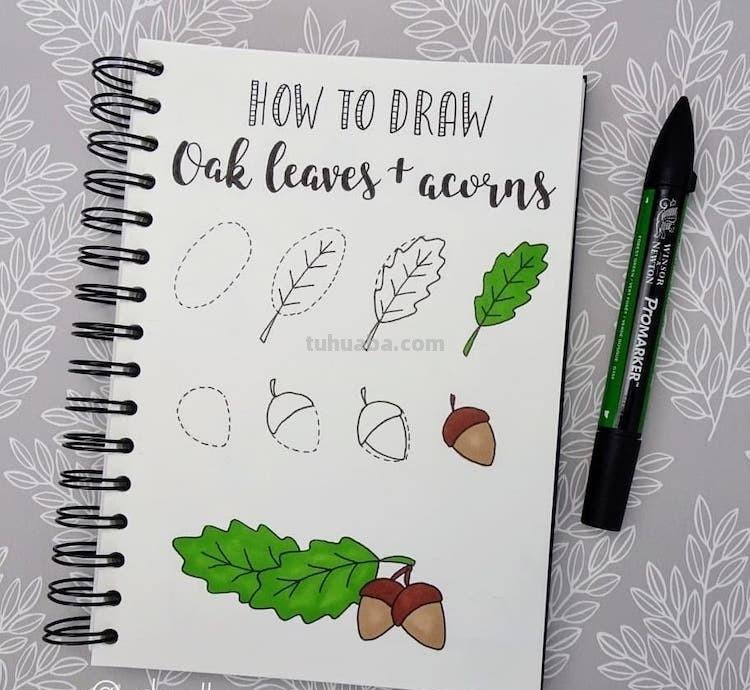 HOW TO DRAW
Oak leaves + acorns
tuhuaba.com
WINSOR
& NEWTON
PROMARKER™